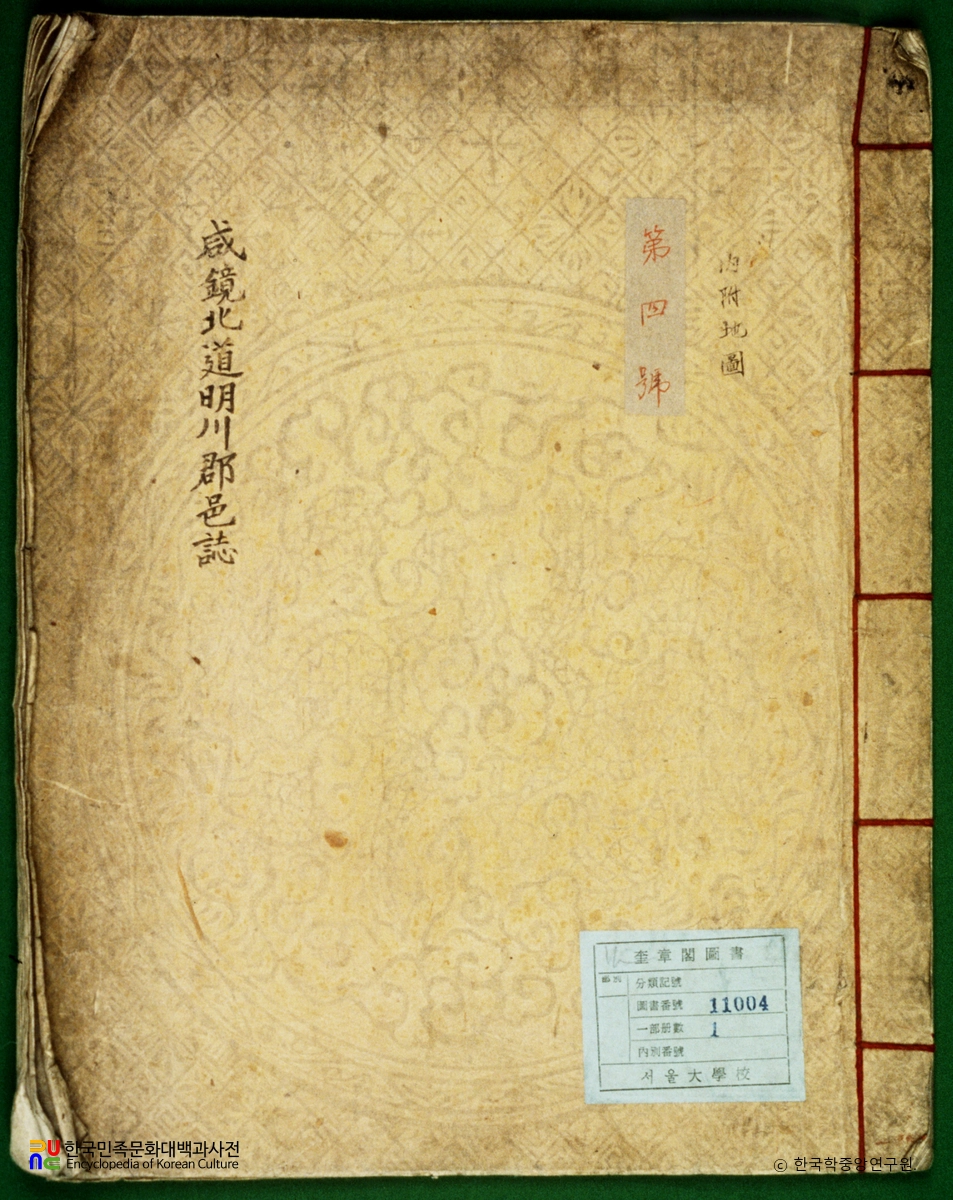 內附地圖
第四號
咸鏡北道明川郡邑誌
奎章閣圖書
部別
分類記號
圖書番號 11004
一部册數 1
內別番號
서울大學校
한국민족문화대백과사전
Encyclopedia of Korean Culture
© 한국학중앙연구원